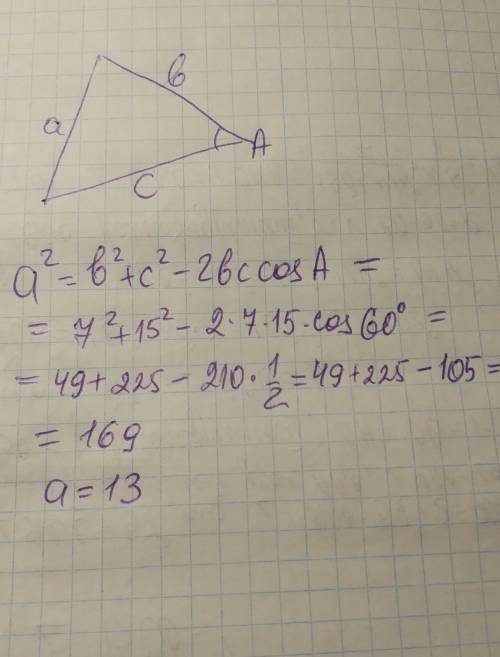 в
a
A
C
a² = в² + c² - 2вc cos A =
= 7² + 15² - 2·7·15·cos 60° =
= 49 + 225 - 210·1/2 = 49 + 225 - 105 =
= 169
a = 13